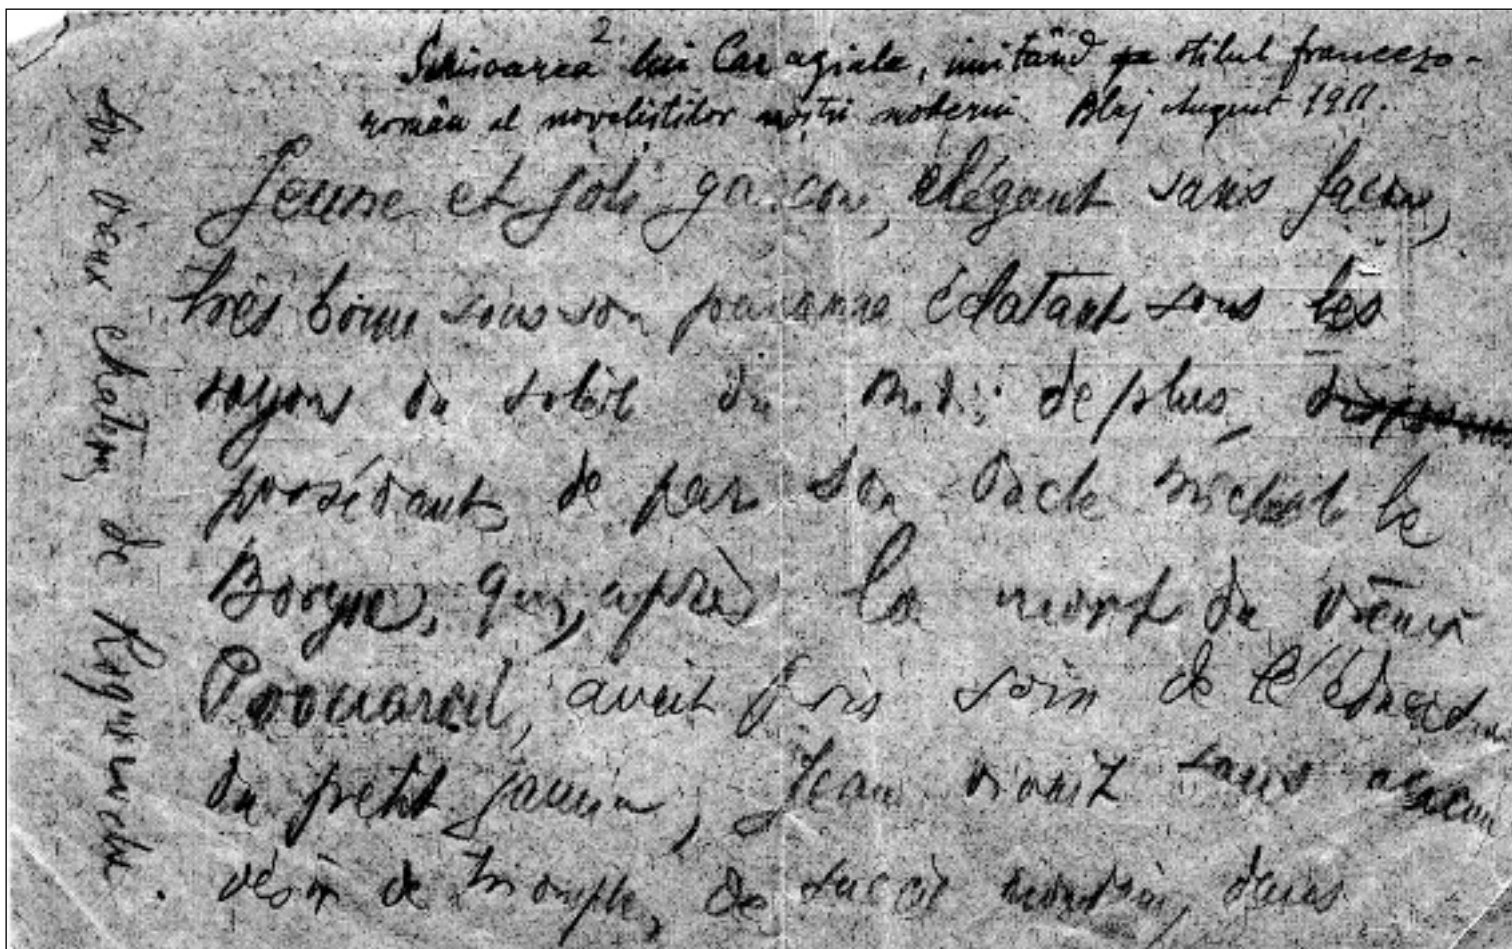 2.
Scrisoarea lui Caragiale, imitând pe stilul francezo-
român al noveliștilor noștri moderni. Blaj August 1911.
Jeune et joli garçon, élégant sans façon,
très brun sous son panama éclatant sous les
rayons du soleil du midi; de plus,
possédant de par son oncle Michel le
Borgne, qui, après la mort du vieux
avait pris soin de l'éducation
du petit gamin, Jean vivait sans aucun
désir de triomphe, de succès mondain, dans
son vieux château de